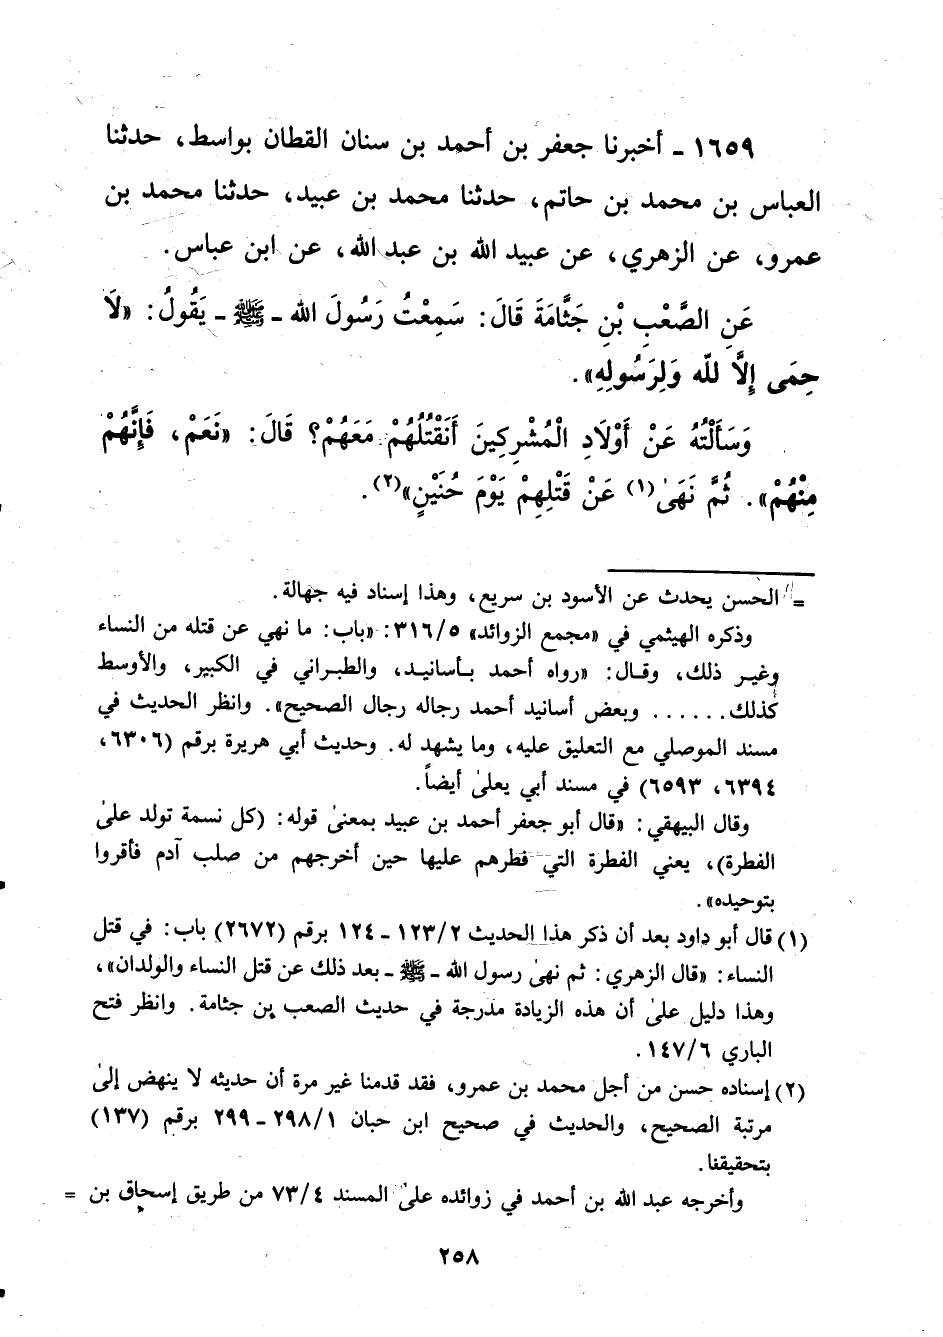 ١٦٥٩ ـ أخبرنا جعفر بن أحمد بن سنان القطان بواسط، حدثنا
العباس بن محمد بن حاتم، حدثنا محمد بن عبيد، حدثنا محمد بن
عمرو، عن الزهري، عن عبيد الله بن عبد الله، عن ابن عباس.
عَنِ الصَّعْبِ بْنِ جَثَّامَةَ قَالَ: سَمِعْتُ رَسُولَ الله ـ ﷺ ـ يَقُولُ: «لَا
حِمَى إِلَّا للّه وَلِرَسُولِهِ».
وَسَأَلْتُهُ عَنْ أَوْلَادِ الْمُشْرِكِينَ أَنَقْتُلُهُمْ مَعَهُمْ؟ قَالَ: «نَعَمْ، فَإِنَّهُمْ
مِنْهُمْ». ثُمَّ نَهَىٰ(١) عَنْ قَتْلِهِمْ يَوْمَ حُنَيْنٍ»(٢).
= الحسن يحدث عن الأسود بن سريع، وهذا إسناد فيه جهالة.
وذكره الهيثمي في «مجمع الزوائد» ٣١٦/٥: «باب: ما نهي عن قتله من النساء
وغير ذلك، وقال: «رواه أحمد بأسانيد، والطبراني في الكبير، والأوسط
كذلك...... وبعض أسانيد أحمد رجاله رجال الصحيح». وانظر الحديث في
مسند الموصلي مع التعليق عليه، وما يشهد له. وحديث أبي هريرة برقم (٦٣٠٦،
٦٣٩٤، ٦٥٩٣) في مسند أبي يعلىٰ أيضاً.
وقال البيهقي: «قال أبو جعفر أحمد بن عبيد بمعنىٰ قوله: (كل نسمة تولد علىٰ
الفطرة)، يعني الفطرة التي فطرهم عليها حين أخرجهم من صلب آدم فأقروا
بتوحيده».
(١) قال أبو داود بعد أن ذكر هذا الحديث ١٢٣/٢ ـ ١٢٤ برقم (٢٦٧٢) باب: في قتل
النساء: «قال الزهري: ثم نهىٰ رسول الله ـ ﷺ ـ بعد ذلك عن قتل النساء والولدان»،
وهذا دليل علىٰ أن هذه الزيادة مدرجة في حديث الصعب بن جثامة. وانظر فتح
الباري ١٤٧/٦.
(٢) إسناده حسن من أجل محمد بن عمرو، فقد قدمنا غير مرة أن حديثه لا ينهض إلىٰ
مرتبة الصحيح، والحديث في صحيح ابن حبان ٢٩٨/١ ـ ٢٩٩ برقم (١٣٧)
بتحقيقنا.
وأخرجه عبد الله بن أحمد في زوائده علىٰ المسند ٧٣/٤ من طريق إسحاق بن =
٢٥٨